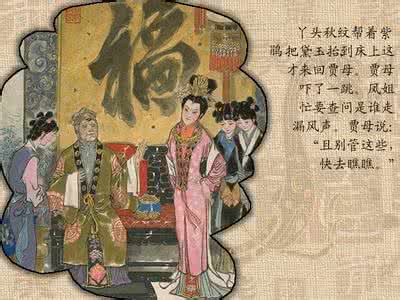 福
丫头秋纹帮着紫
鹃把黛玉抬到床上这
才来回贾母。贾母
吓了一跳。凤姐
忙要查问是谁走
漏风声。贾母说:
“且别管这些,
快去瞧瞧。”